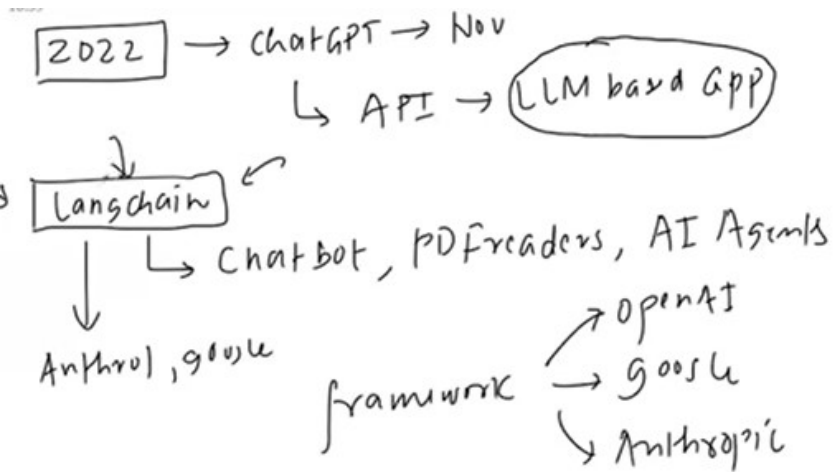 2022 → ChatGPT → Nov
↳ API → LLM based app
Langchain
↳ Chatbot, PDFreaders, AI Agents
OpenAI
, google
framework → google
Anthropic